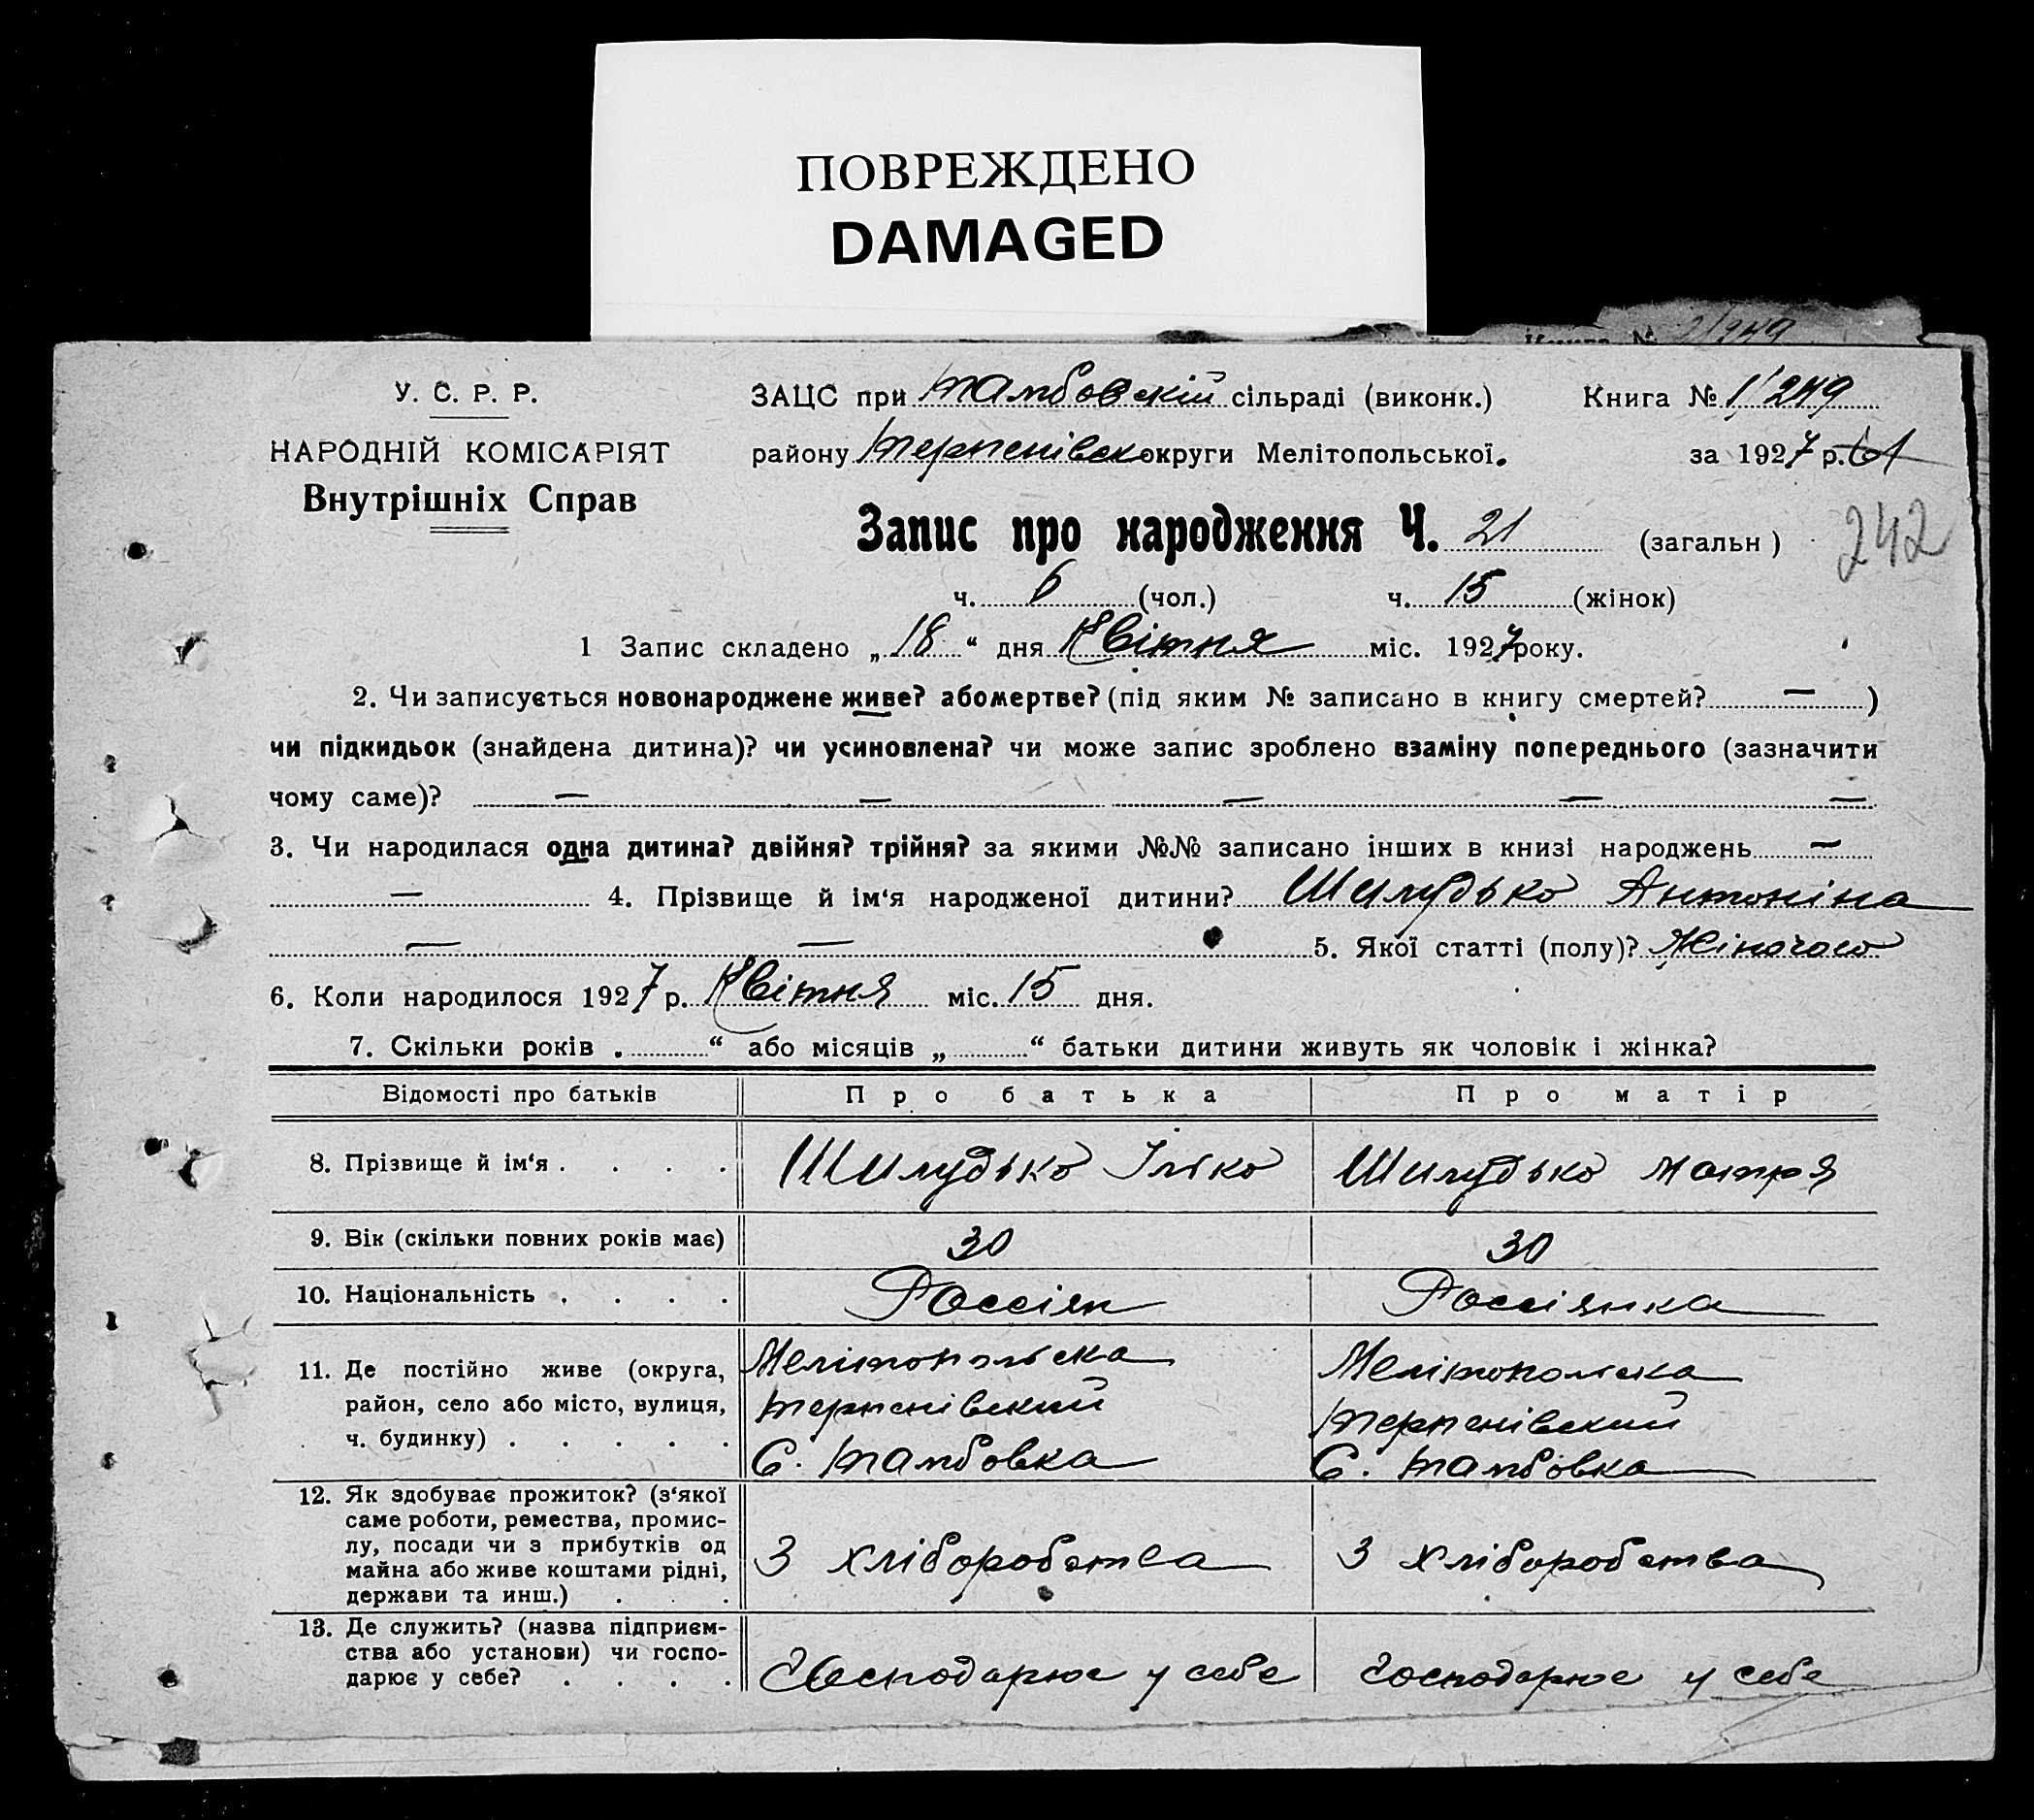 ПОВРЕЖДЕНО
DAMAGED
У. С. Р. Р.
НАРОДНІЙ КОМІСАРІЯТ
Внутрішніх Справ
ЗАЦС при Тамбовскій сільраді (виконк.)
району Терпенівск округи Мелітопольської.
Книга № 1/249
за 1927 р.
242
Запис про народження Ч. 21 (загальн )
ч. 6 (чол.) ч. 15 (жінок)
1 Запис складено „18“ дня Квітня міс. 1927 року.
2. Чи записується новонароджене живе? або мертве? (під яким № записано в книгу смертей? — )
чи підкидьок (знайдена дитина)? чи усиновлена? чи може запис зроблено взаміну попереднього (зазначити
чому саме)? — — — — —
3. Чи народилася одна дитина? двійня? трійня? за якими №№ записано інших в книзі народжень —
— 4. Прізвище й ім‘я народженої дитини? Шилудько Антоніна
— — 5. Якої статті (полу)? Жіночого
6. Коли народилося 1927 р. Квітня міс. 15 дня.
7. Скільки років „ “ або місяців „ “ батьки дитини живуть як чоловік і жінка?
Відомості про батьків Про батька Про матір
8. Прізвище й ім‘я . . . . Шилудько Ілько Шилудько Мотря
9. Вік (скільки повних років має) 30 30
10. Національність . . . . Россіян Россіянка
11. Де постійно живе (округа, Мелітопольска Мелітопольска
район, село або місто, вулиця, Терпенівский Терпенівский
ч. будинку) . . . . . С. Тамбовка С. Тамбовка
12. Як здобуває прожиток? (з‘якої
саме роботи, ремества, промис-
лу, посади чи з прибутків од
майна або живе коштами рідні,
держави та инш.) . . .
З хліборобства З хліборобства
13. Де служить? (назва підприєм-
ства або установи) чи госпо-
дарює у себе? . . . .
Господарює у себе Господарює у себе